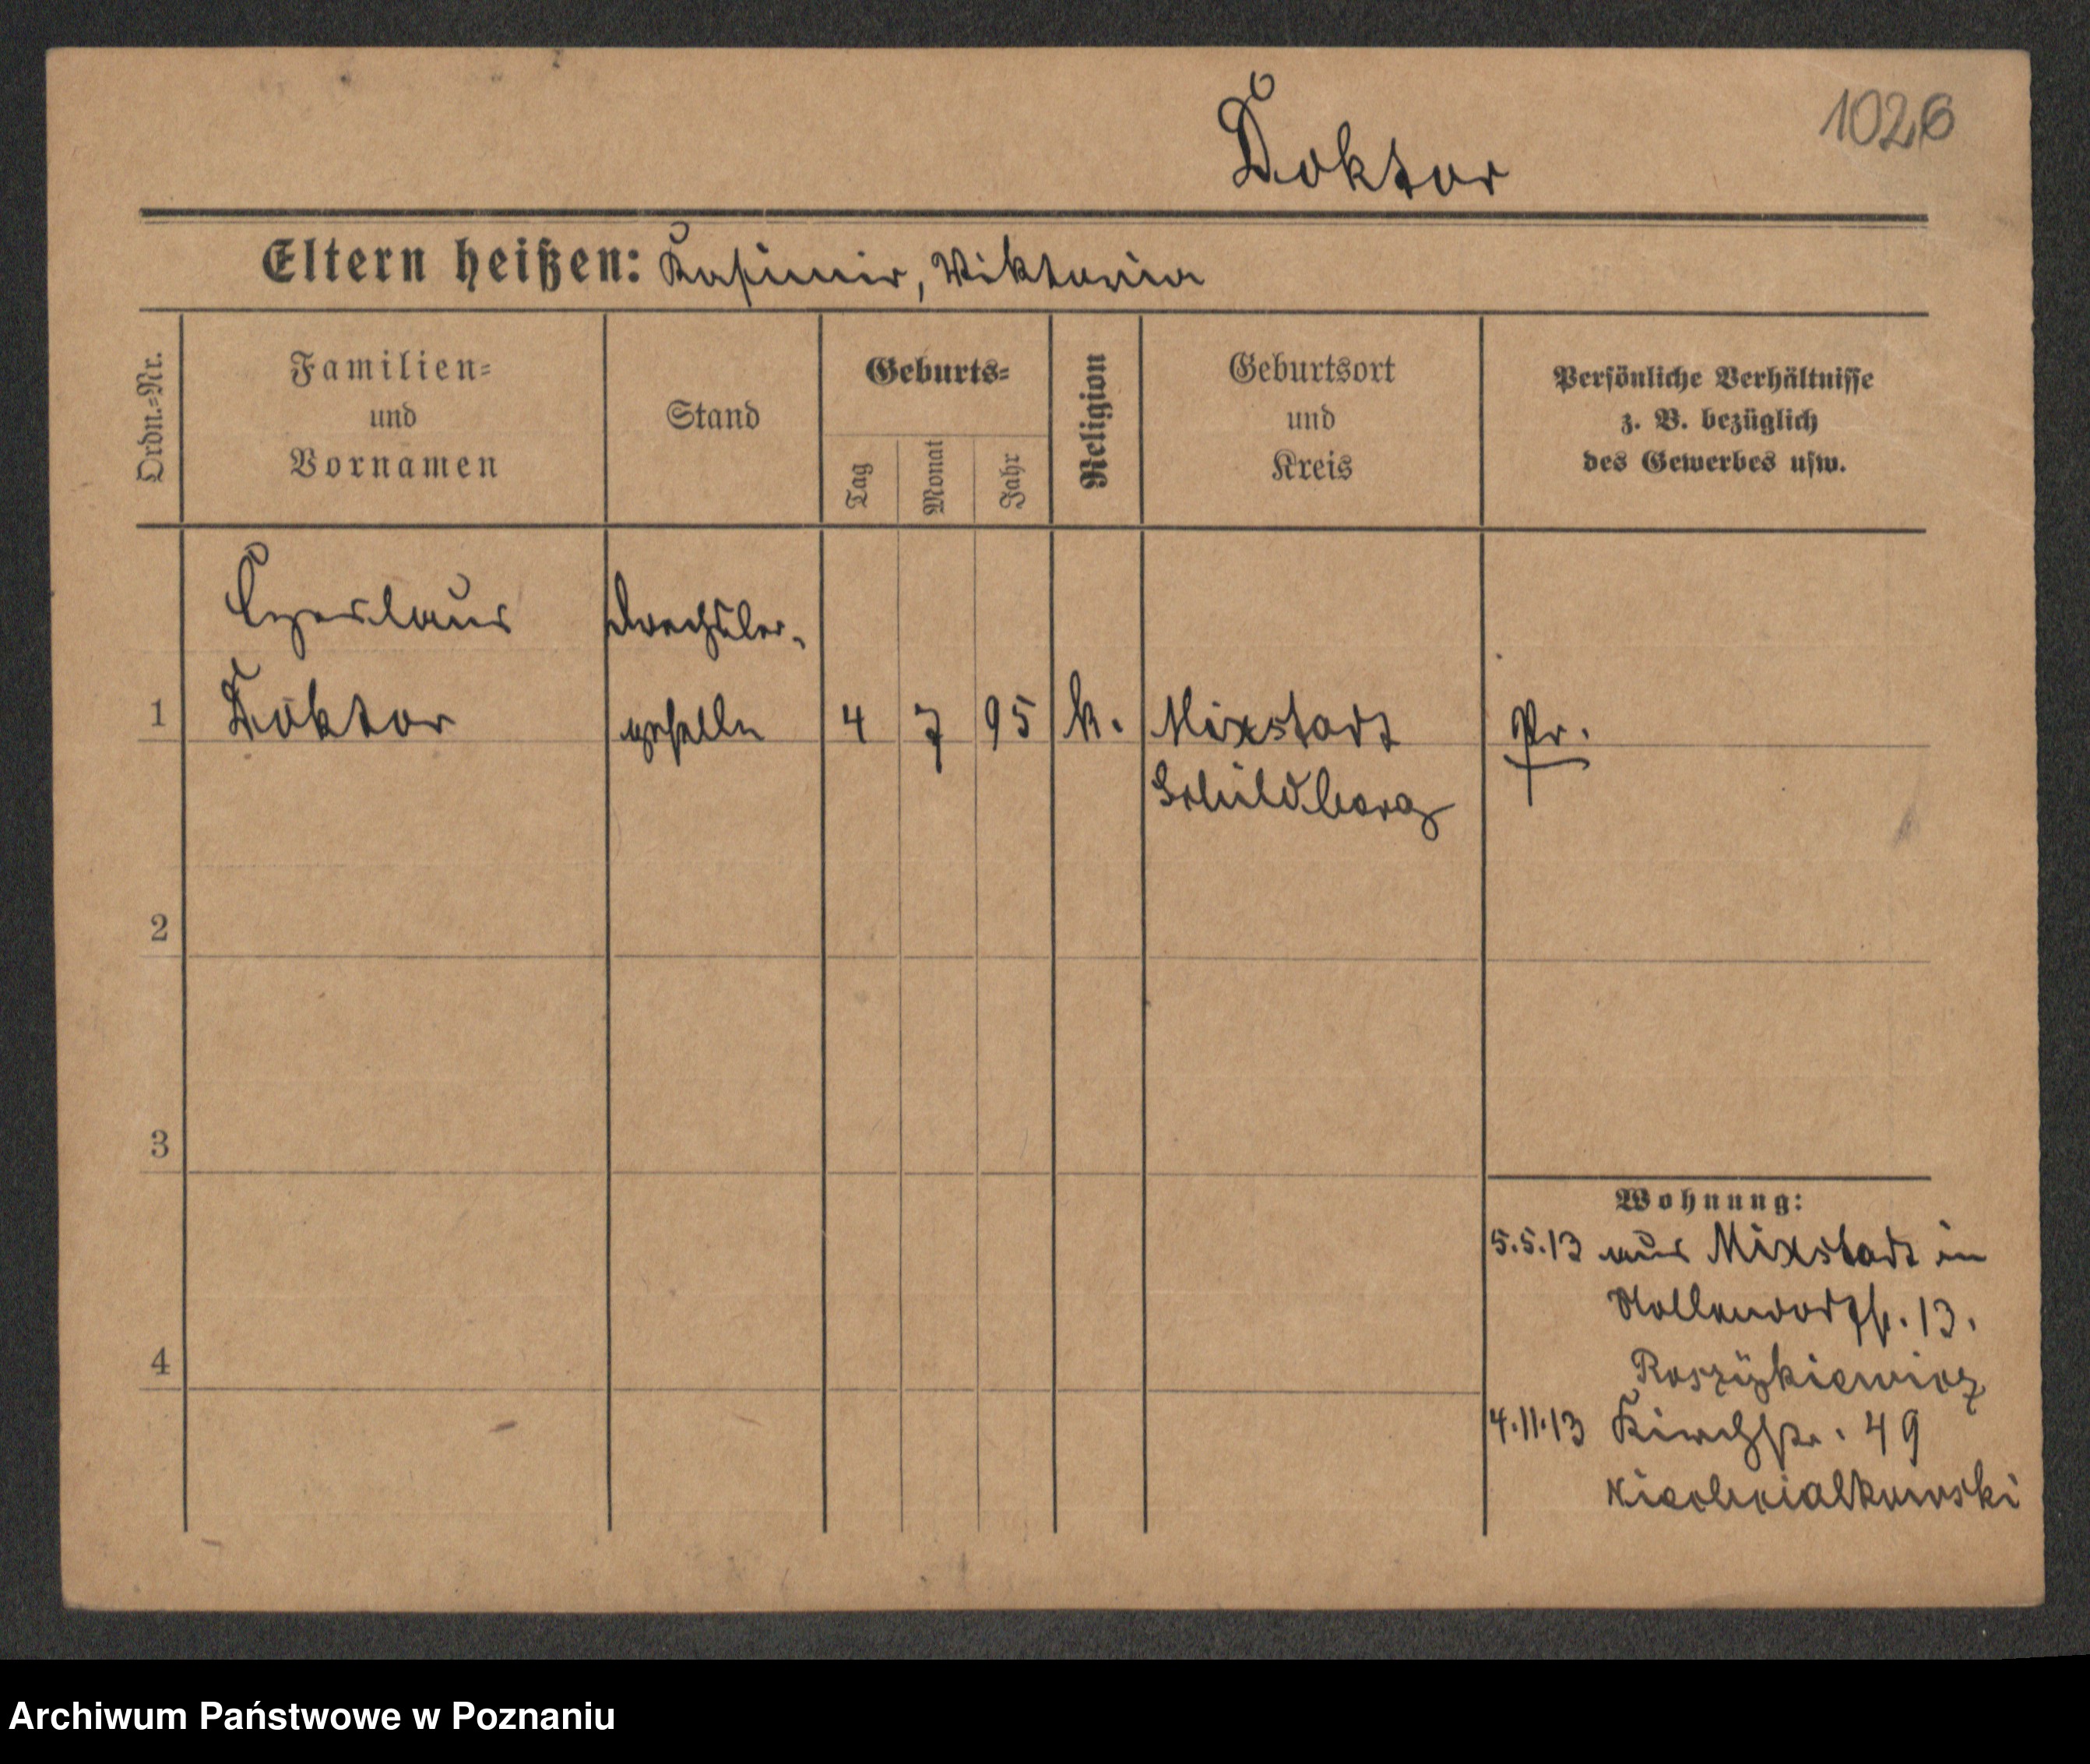 1026
Doktor
Eltern heißen: Kasimir, Viktoria
Ordn.=Nr.
Familien=
und
Vornamen
Stand
Geburts=
Tag
Monat
Jahr
Religion
Geburtsort
und
Kreis
Persönliche Verhältnisse
z. B. bezüglich
des Gewerbes usw.
Czeslaus Drechsler-
1 Doktor geselle 4 7 95 k. Mixstadt Pr.
Schildberg
2
3
4
Wohnung:
5.5.13 aus Mixstadt in
Nollendorfstr. 13.
Roszykiewicz
4.11.13 Kirchstr. 49
Archiwum Państwowe w Poznaniu